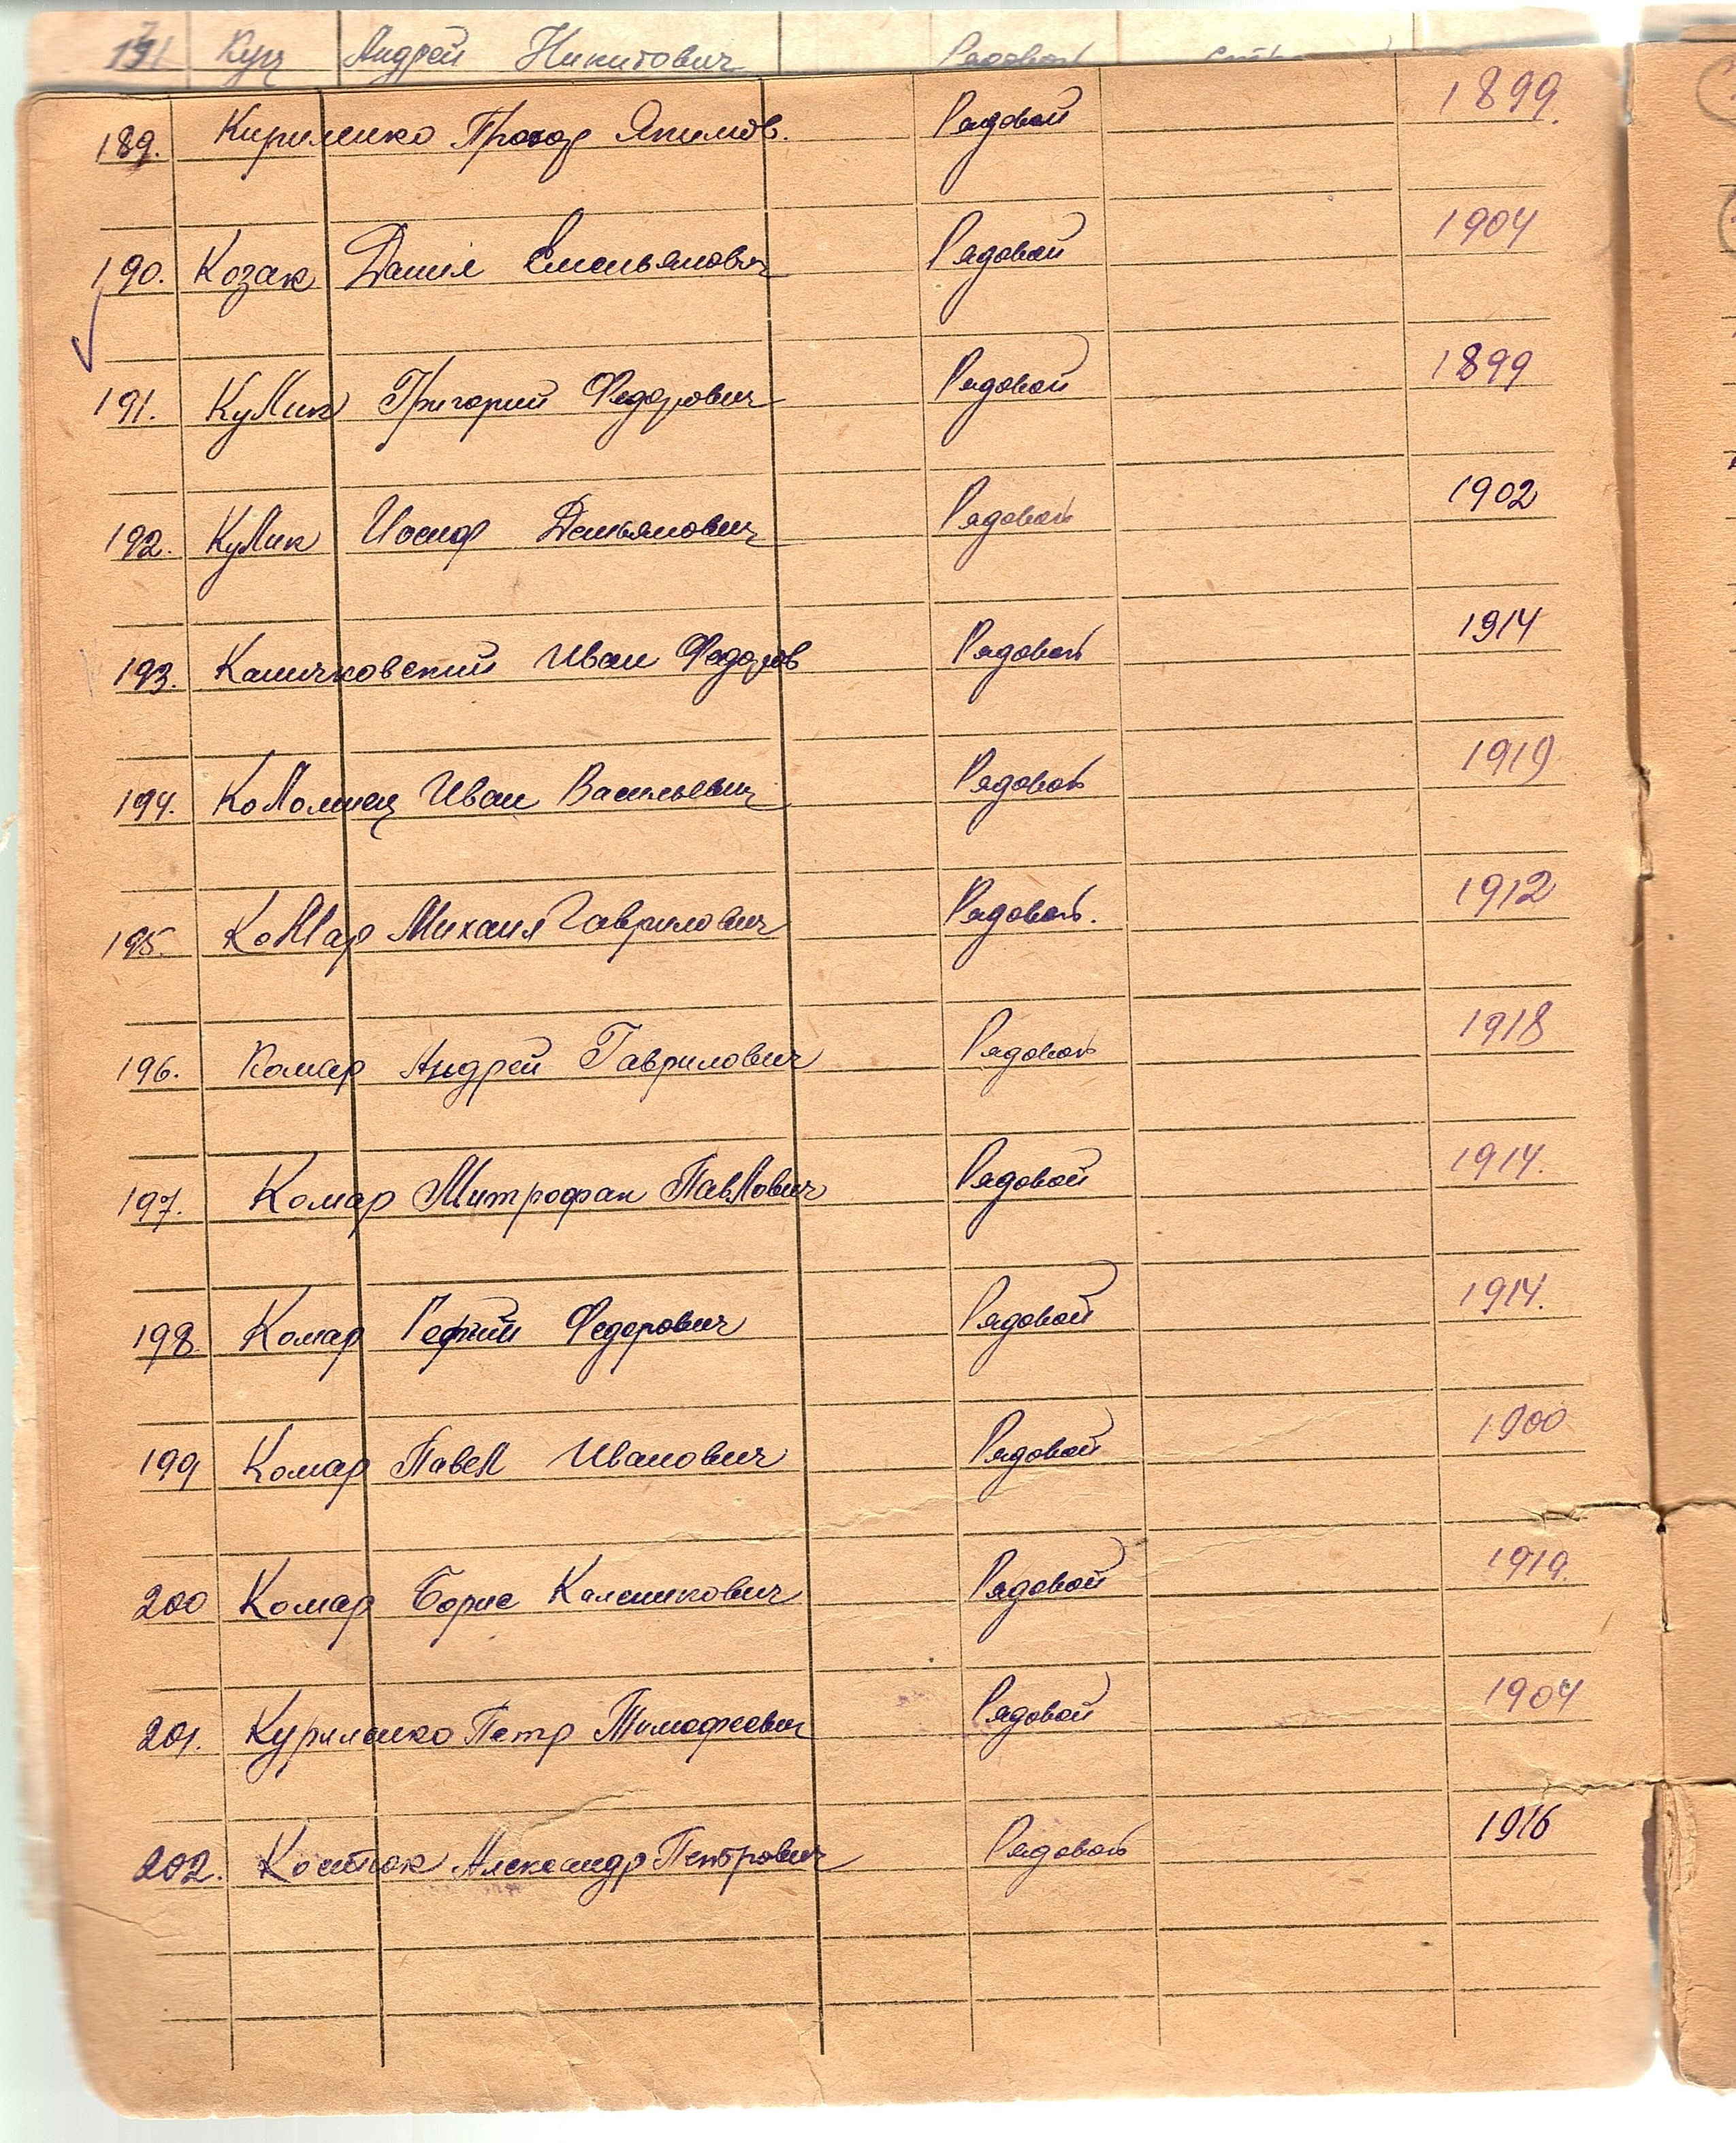 191 Куц Андрей Никитович Рядовой
189. Кириленко Прохор Якимов. Рядовой 1899.
190. Козак Данил Емельянович Рядовой 1904
191. Кулик Григорий Федорович Рядовой 1899
192. Кулик Иосиф Демьянович Рядовой 1902
193. Каничковский Иван Федоров Рядовой 1914
194. Коломиец Иван Васильевич Рядовой 1919
195. Комар Михаил Гаврилович Рядовой. 1912
196. Комар Андрей Гаврилович Рядовой 1918
197. Комар Митрофан Павлович Рядовой 1914.
198. Комар Федорович Рядовой 1914.
199 Комар Павел Иванович Рядовой 1900
200 Комар Борис Каленикович Рядовой 1919.
201. Куриленко Петр Тимофеевич Рядовой 1904
202. Костюк Александр Петрович Рядовой 1916